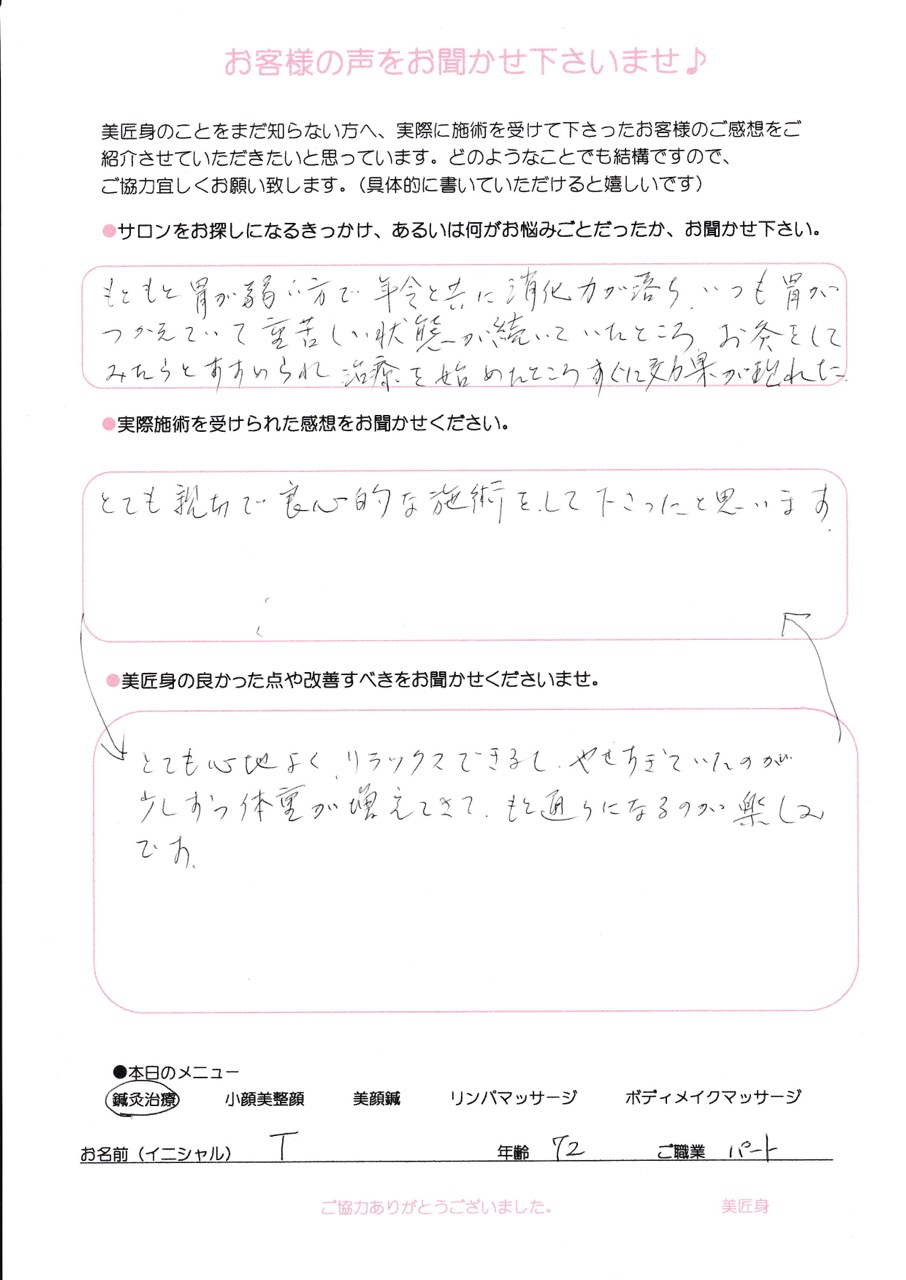 お客様の声をお聞かせ下さいませ♪
美匠身のことをまだ知らない方へ、実際に施術を受けて下さったお客様のご感想をご
紹介させていただきたいと思っています。どのようなことでも結構ですので、
ご協力宜しくお願い致します。（具体的に書いていただけると嬉しいです）
●サロンをお探しになるきっかけ、あるいは何がお悩みごとだったか、お聞かせ下さい。
もともと胃が弱い方で年令と共に消化力が落ち、いつも胃が
つかえていて重苦しい状態が続いていたところ、お灸をして
みたらとすすめられ治療を始めたところすぐに効果が現れた。
●実際施術を受けられた感想をお聞かせください。
とても親切で良心的な施術をして下さったと思います。
●美匠身の良かった点や改善すべきをお聞かせくださいませ。
とても心地よく、リラックスできるし、やせすぎていたのが
少しずつ体重が増えてきて、もと通りになるのが楽しみ
です。
●本日のメニュー
鍼灸治療 小顔美整顔 美顔鍼 リンパマッサージ ボディメイクマッサージ
お名前（イニシャル） T 年齢 72 ご職業 パート
ご協力ありがとうございました。 美匠身